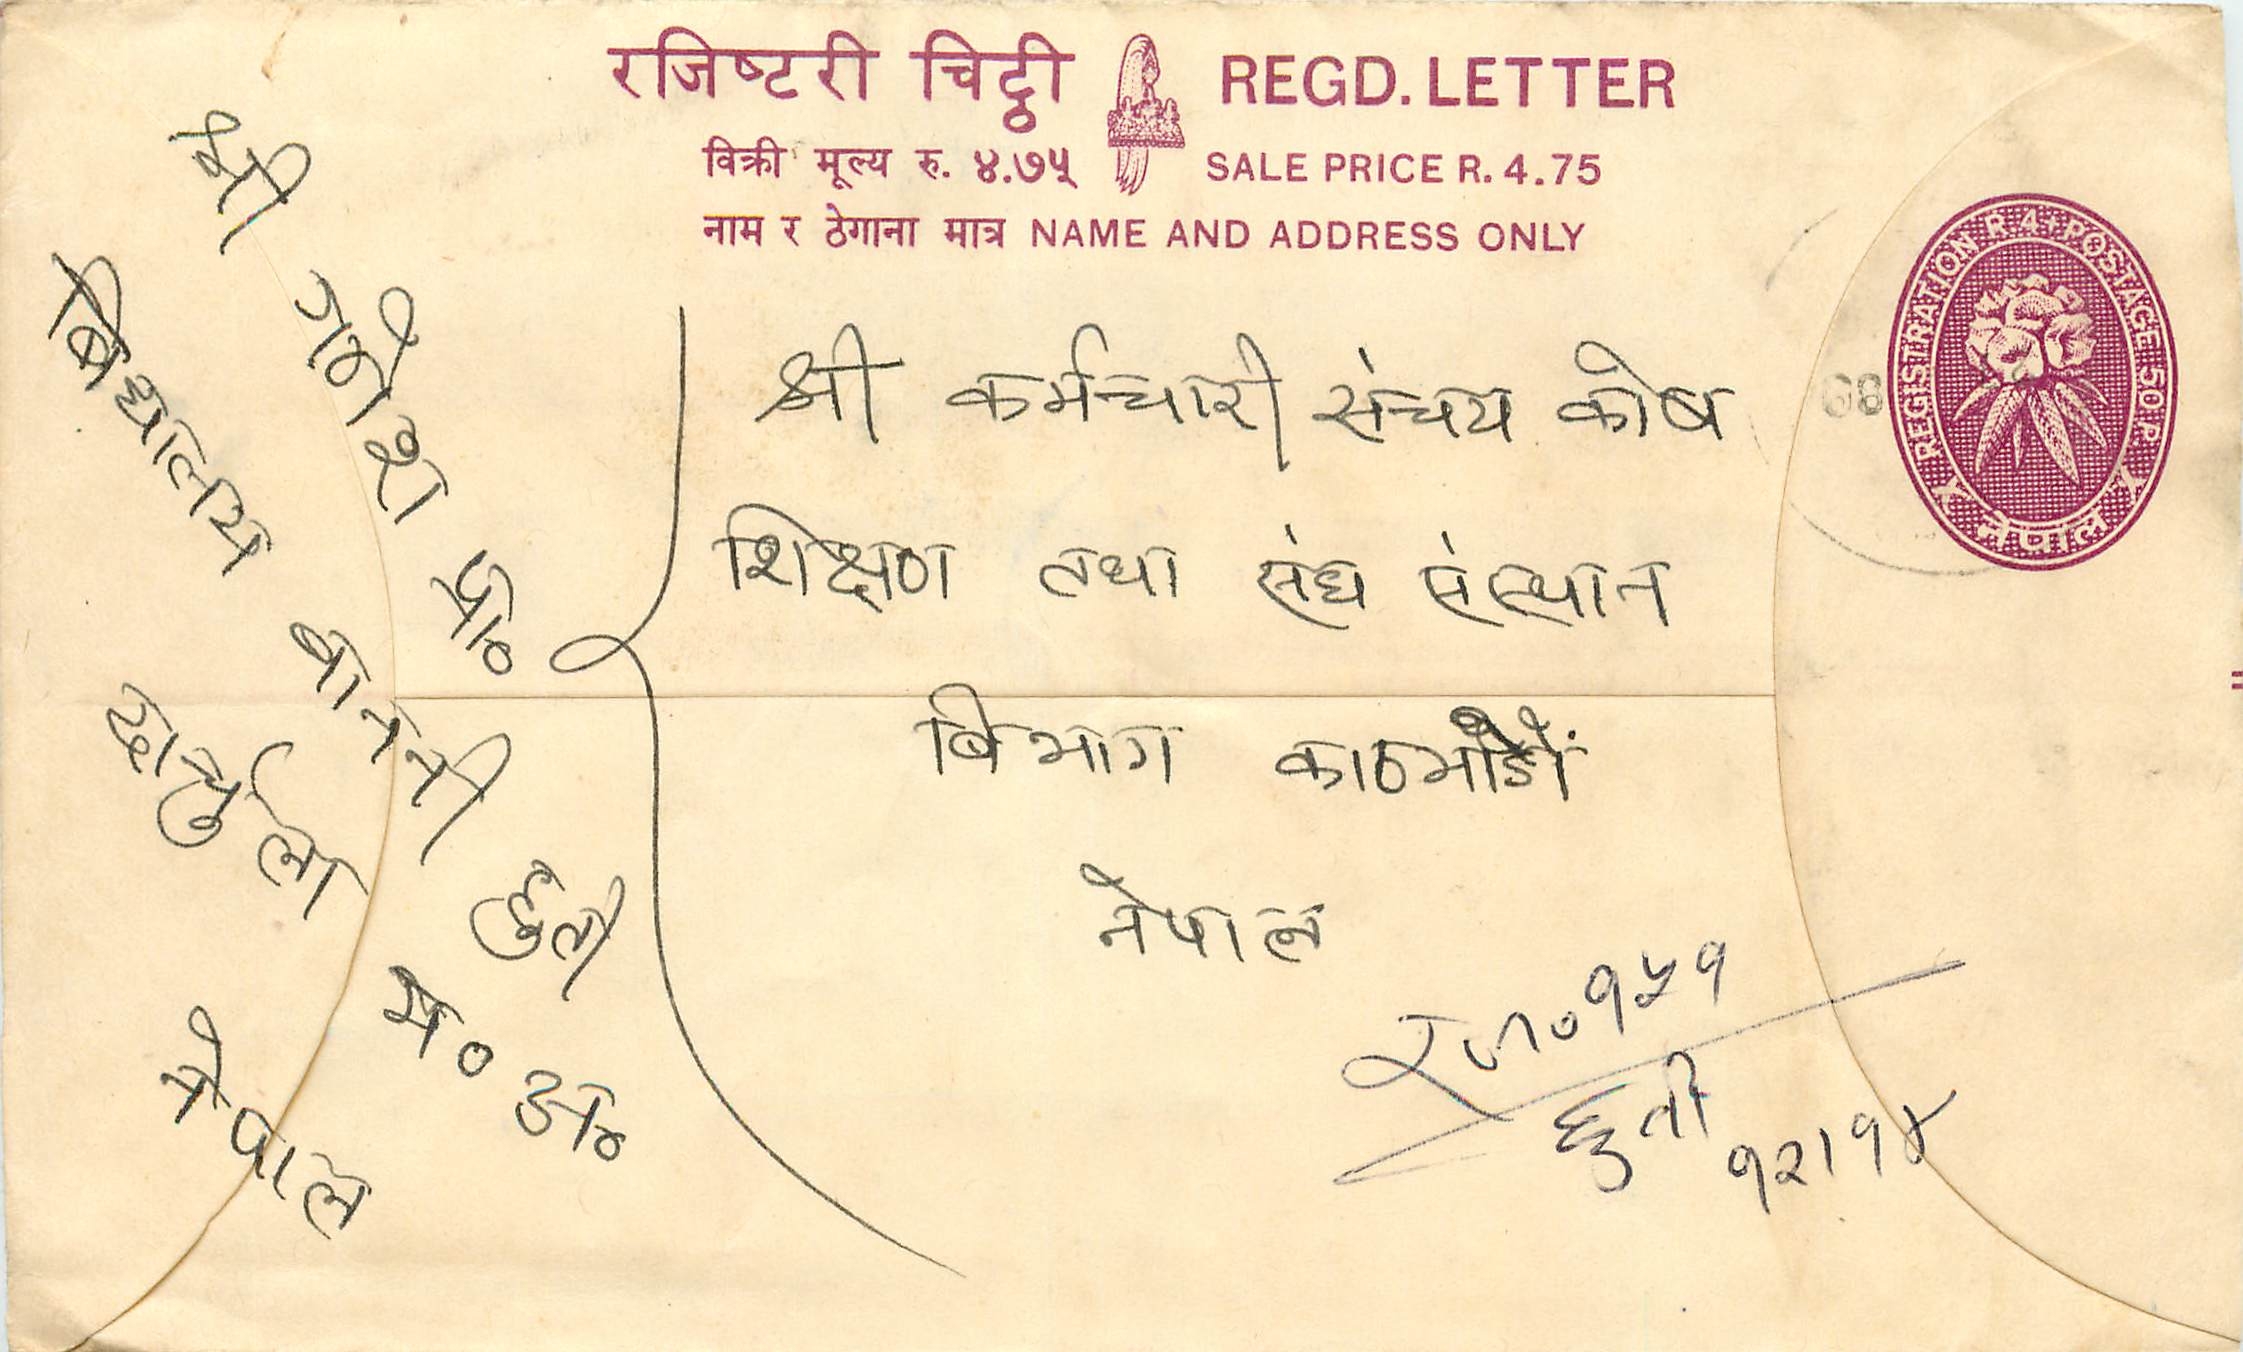 रजिष्टरी चिट्ठी REGD. LETTER
विक्री मूल्य रु. ४.७५ SALE PRICE R. 4.75
नाम र ठेगाना मात्र NAME AND ADDRESS ONLY
REGISTRATION R 4+POSTAGE 50 P.
नेपाल
68
श्री कर्मचारी संचय कोष
शिक्षण तथा संघ संस्थान
बिभाग काठमाडौं
नेपाल
श्री गणेश प्रा०
बिद्यालय बाननी हुती
दार्चुला म० अ०
नेपाल
र जा० १५१
हुती
१२।१४